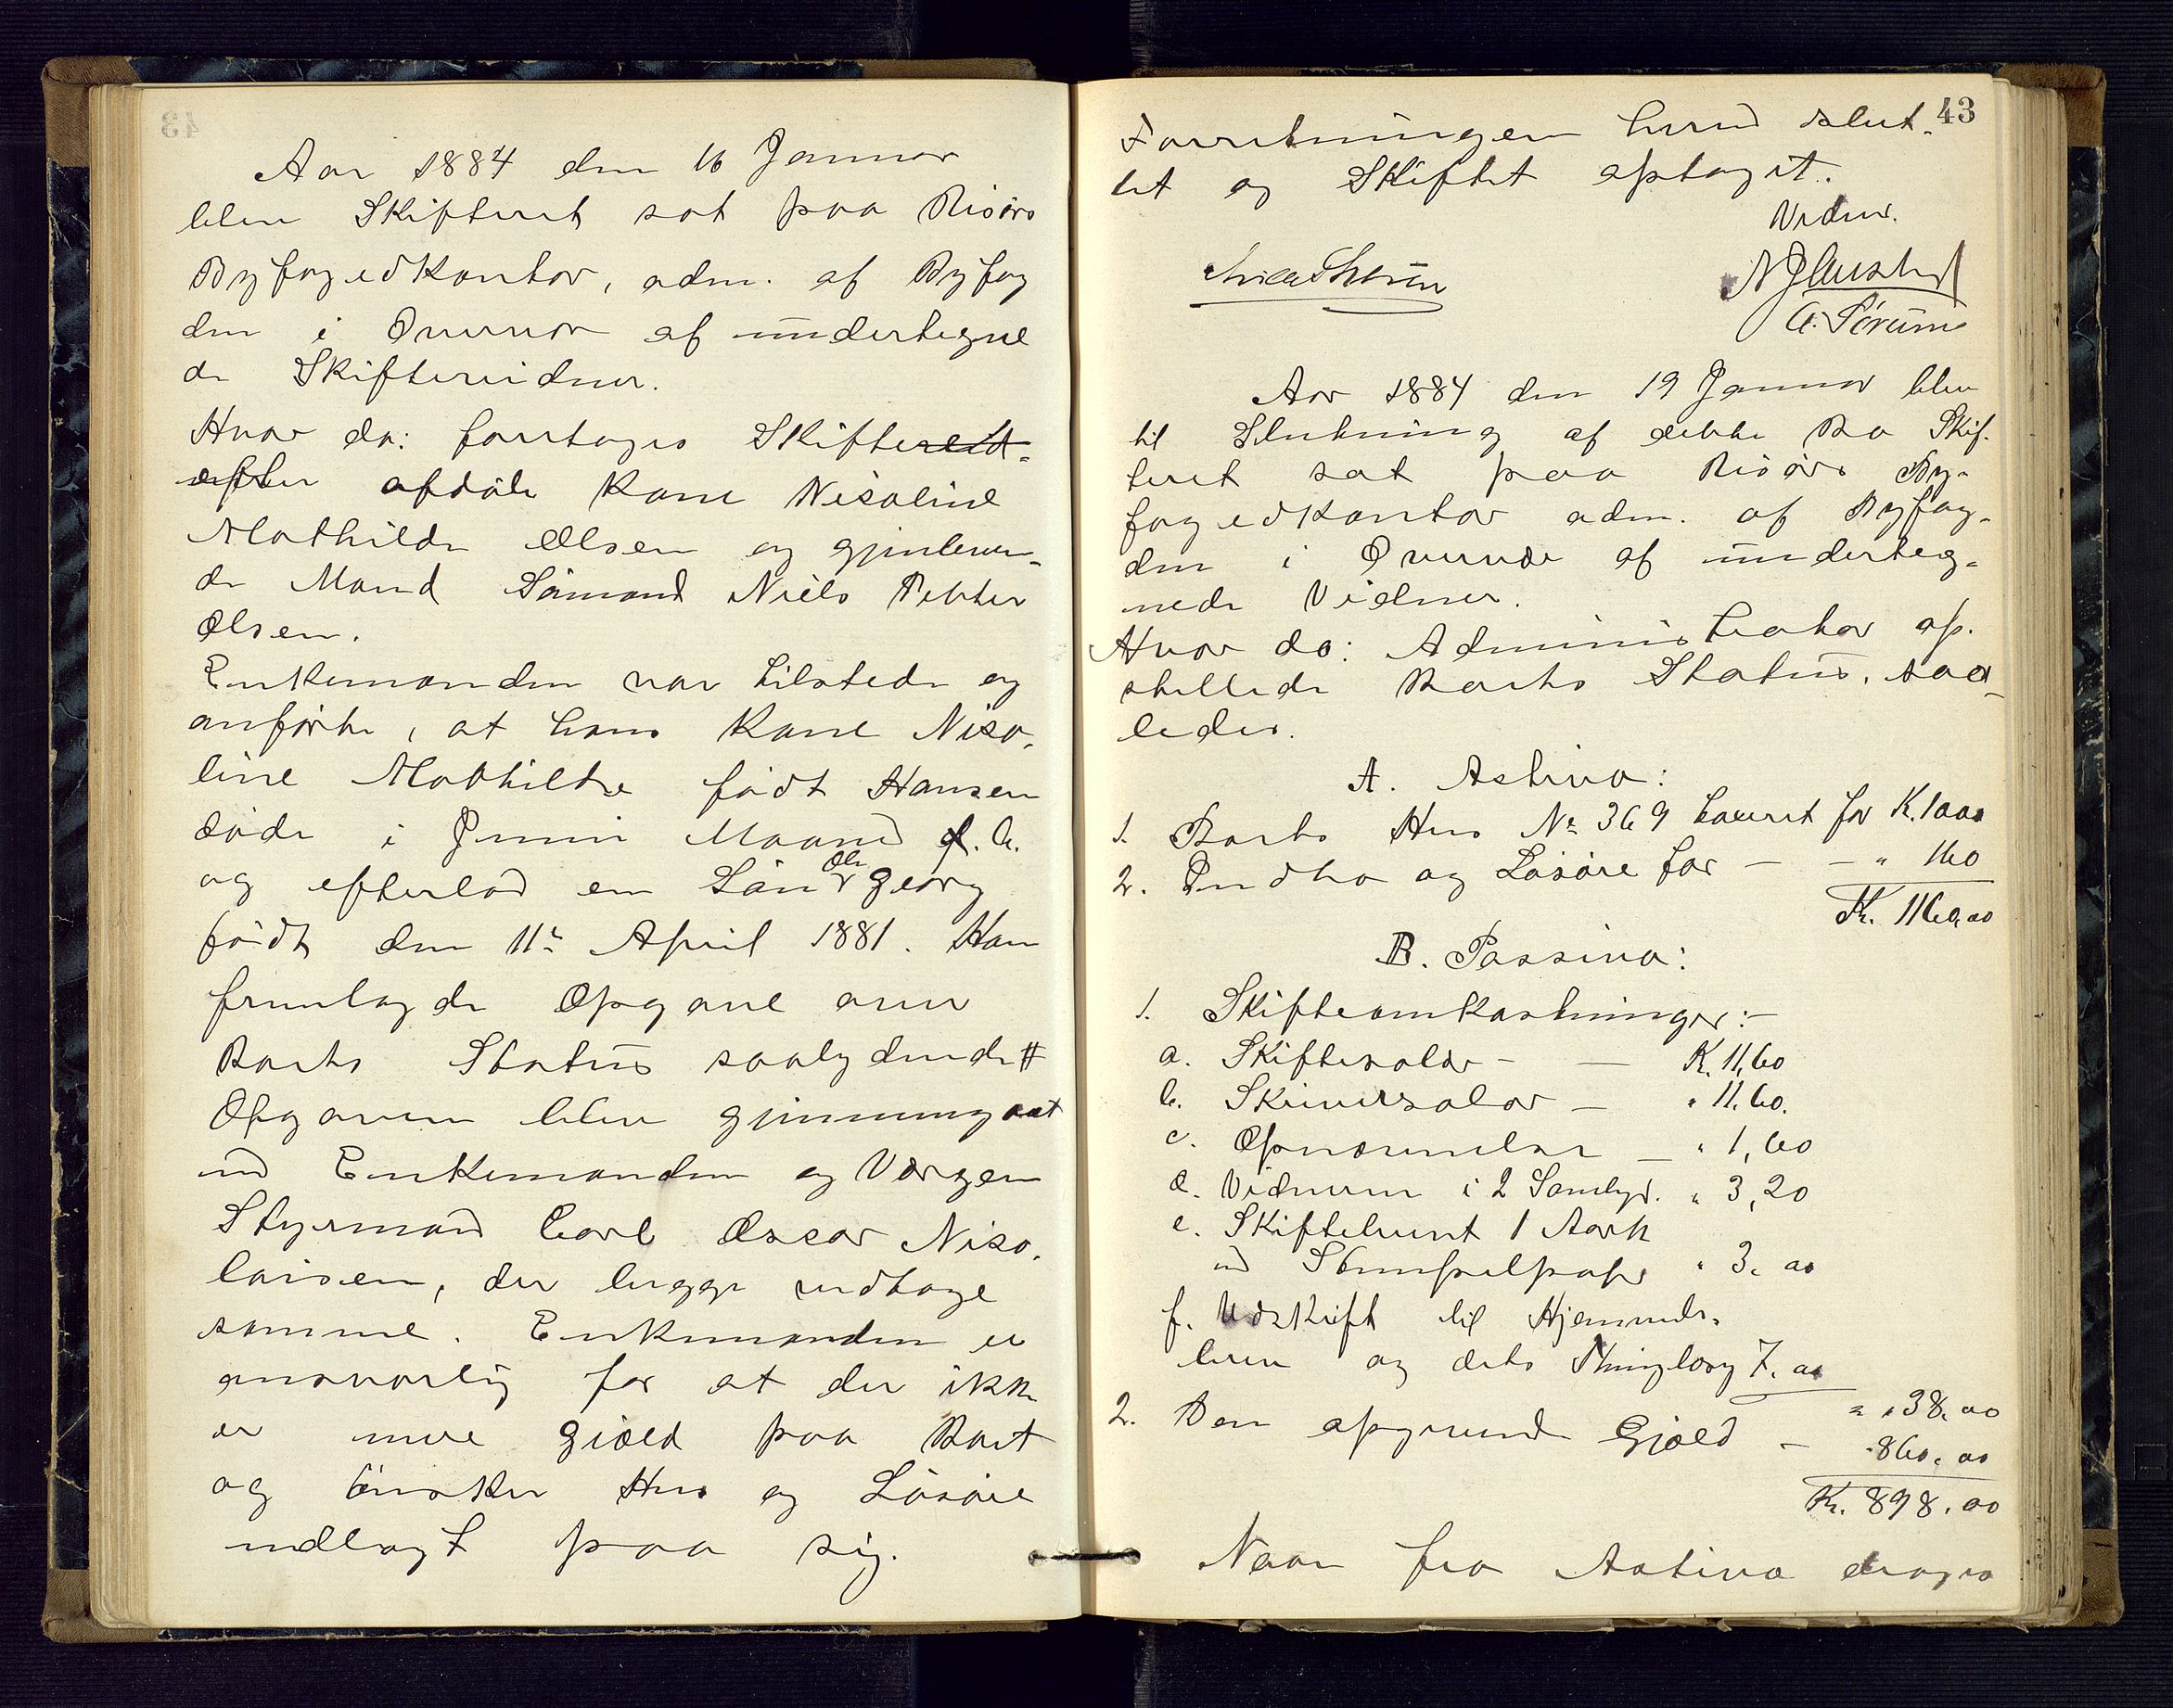 Aar 1884 den 16 Januar
blev Skifteret sat paa Risørs
Byfogedkontor, adm. af Byfog
den i Overvær af undertegne
de Skiftevidner.
Hvor da: foretoges Skifteret
efter afdøde Kone Nisoline
Mathilde Olsen og gjenleven-
de Mand Sømand Niels Petter
Olsen.
Enkemanden var tilstede og
anførte, at hans Kone Niso-
line Mathilde født Hansen
døde i Juni Maaned f. A.
og efterlod en Søn Ole Georg
født den 11te April 1881. Han
fremlagde Opgave over
Boets Status saalydende #
Opgaven blev gjennemgaaet
med Enkemanden og Værgen
Styrmand Carl Oscar Niso-
laisen, der begge vedtoge
samme. Enkemanden er
ansvarlig for at der ikke
er mere Gjæld paa Boet
og ønsker Hus og Løsøre
udlagt paa sig.
43
Forretningen herved slut-
tet og Skiftet optaget.
Vidner.
A. Sørum
Aar 1884 den 19 Januar blev
til Slutning af dette Bo Skif-
teret sat paa Risørs By-
fogedkontor adm. af Byfog-
den i Overvær af underteg-
nede Vidner.
Hvor da: Administrator op-
stillede Boets Status, saa-
ledes.
A. Activa:
1. Boets Hus No 369 taxeret for K. 1000
2. Indbo og Løsøre for — — " 160
Kr. 1160,00
B. Passiva:
1. Skifteomkostninger:—
a. Skiftesalær — — K. 11,60
b. Skriversalær — " 11.60.
c. Opnævnelse — " 1,60
d. Vidnerne i 2 Samlgr. " 3,20
e. Skiftebrevet 1 Aark
med Stempelpapir " 3. 00
f. Udskrift til Hjemmels-
brev og dets Thinglæsg 7. 00
" " 38. 00
2. Den opgivende Gjæld — " 860. 00
Kr. 898. 00
Naar fra Activa drages